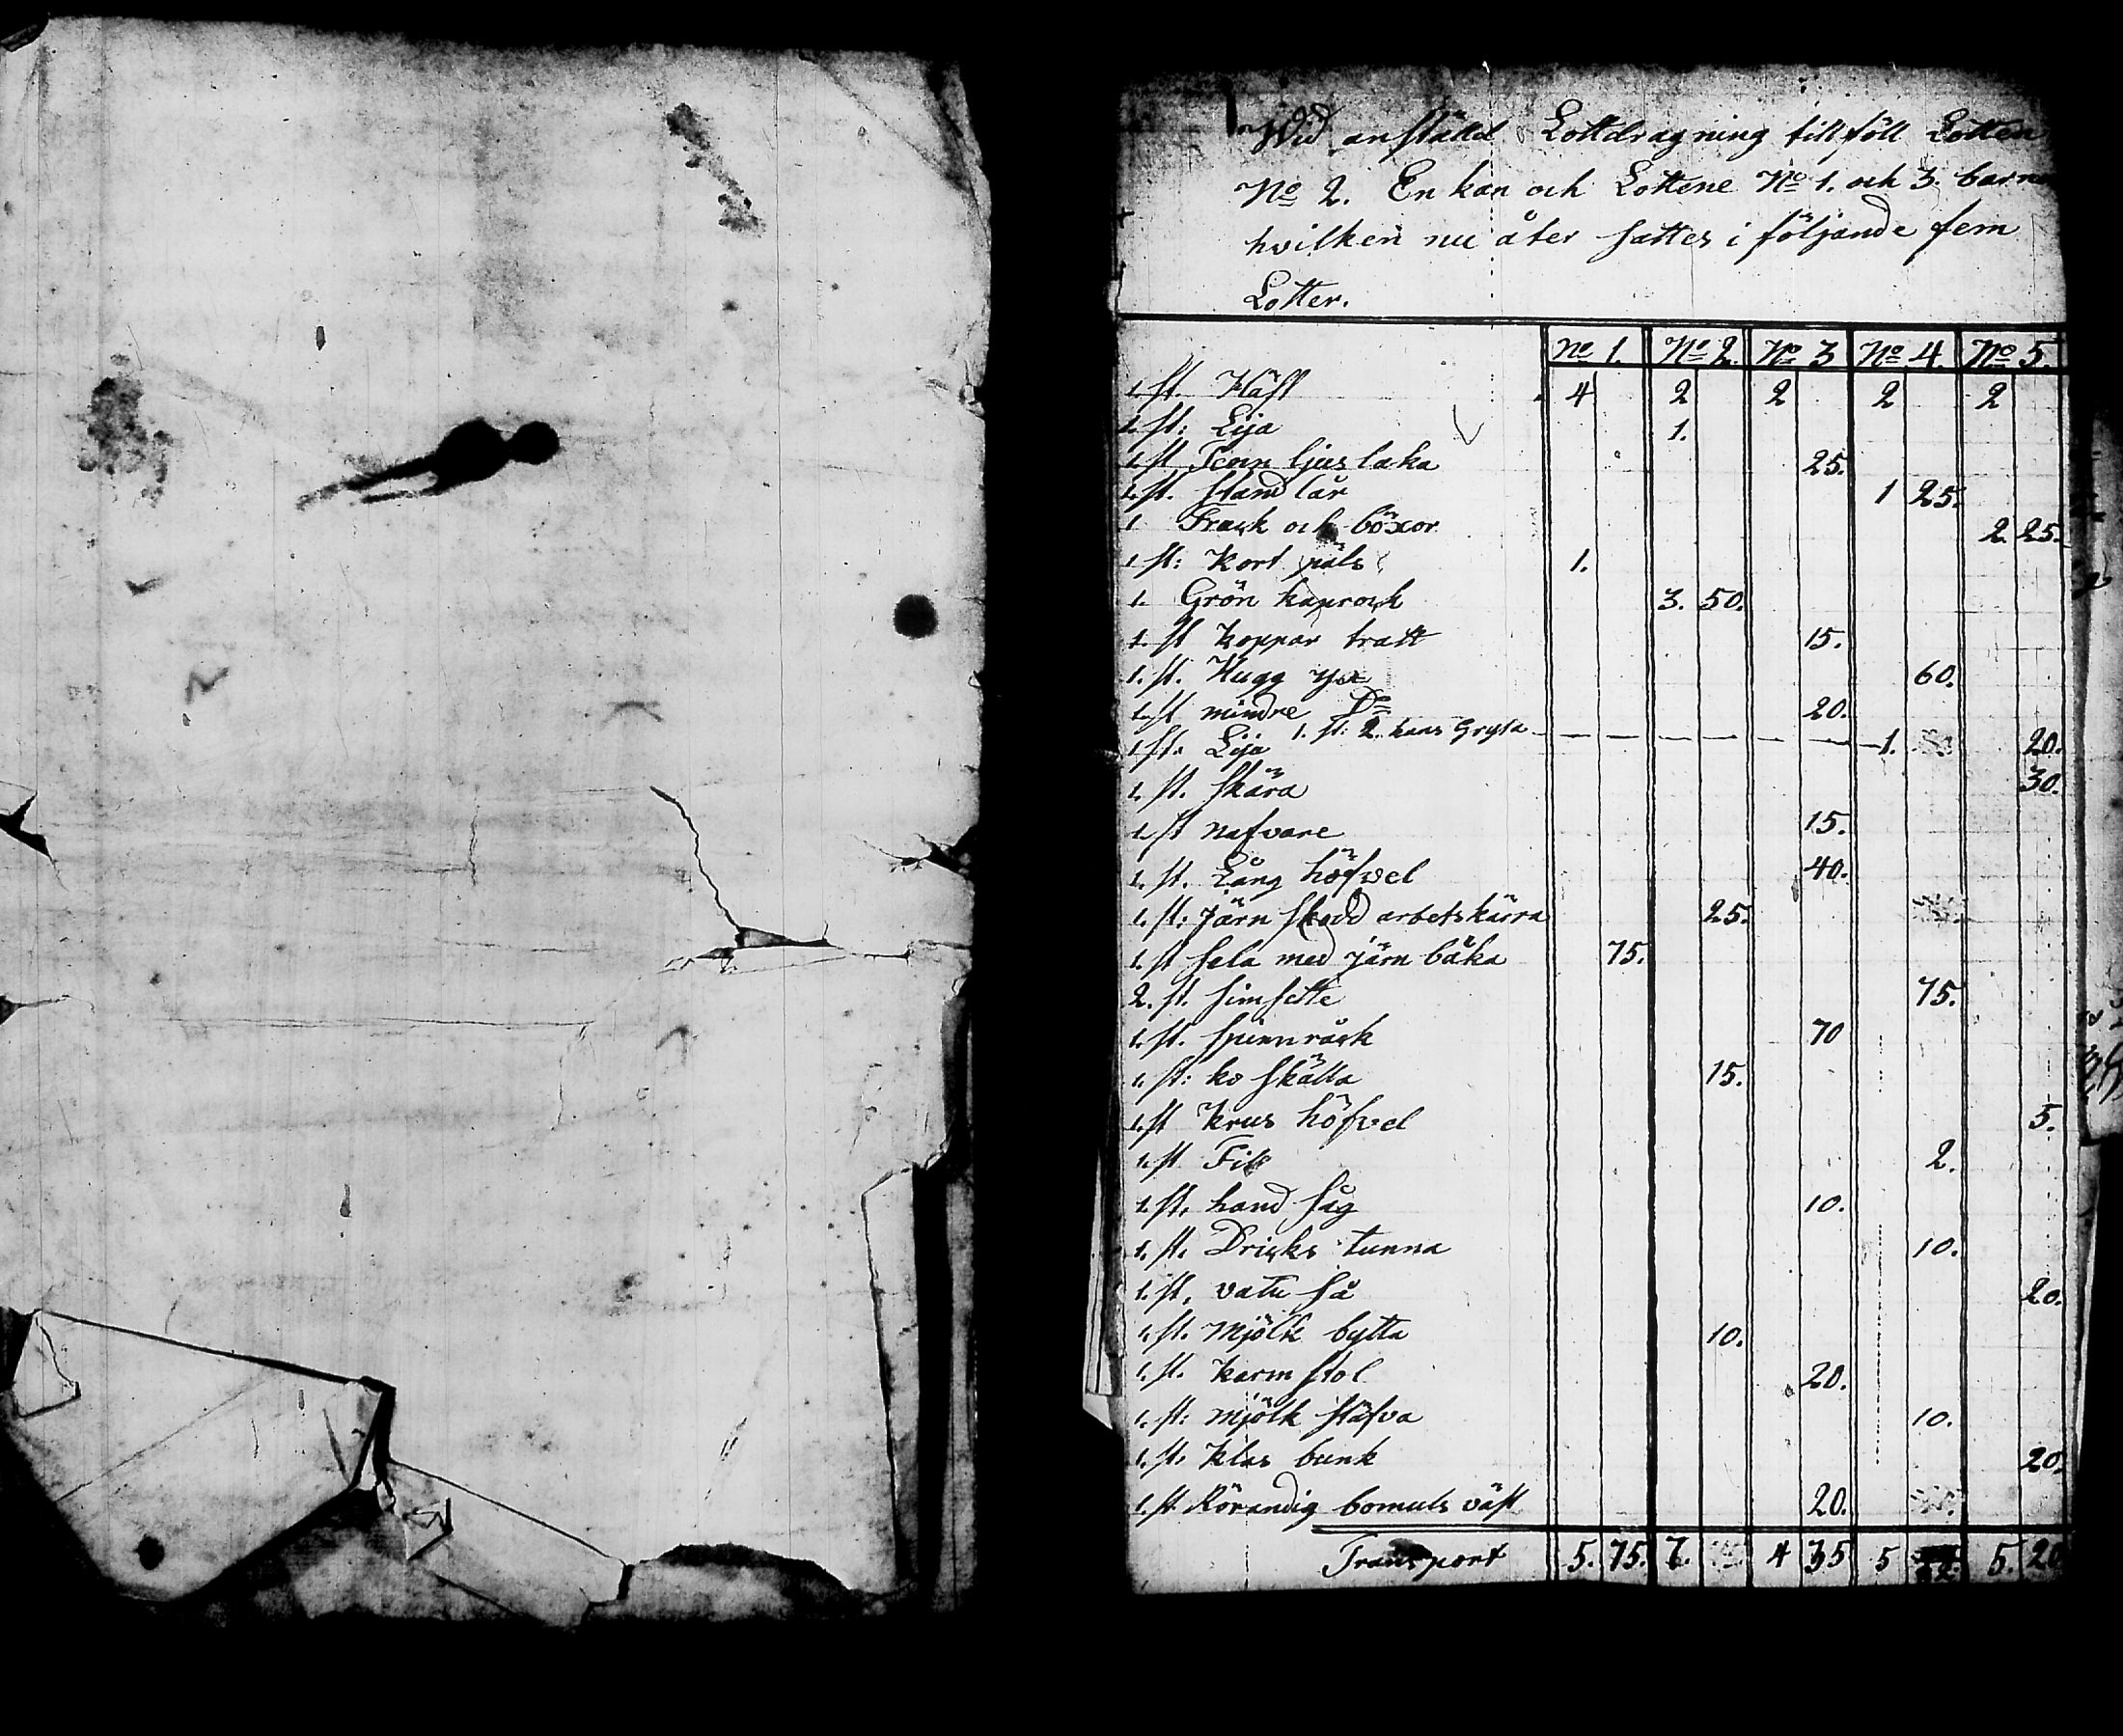 Wid anställd Lottdragning tillföll Lotten
No 2. Enkan och Lottene No 1. och 3. barnen
hvilken nu åter sattes i följande fem
Lotter.
No 1. No 2. No 3 No 4. No 5.
1. st. Häst 4 2 2 2 2
1. st: Lija 1.
1. st Tenn ljus laka 25.
1. st. stand lår 1 25.
1 Frack och böxor 2. 25.
1. st: Kort päls 1.
1. Grön kaprock 3. 50.
1. st Koppar tratt 15.
1. st. Hugg yxa 60.
1. st mindre Do 20.
1. st: 2. kans Gryta 1.
1. st. Lija 20.
1. st. skära 30.
1. st nafvare 15.
1. st. Lång höfvel 40.
1. st: Järn skodd arbetskärra 25.
1. st sela med järn båka 75.
2. st. 75.
1. st. spinnråck 70
1. st: ko skälla 15.
1. st Krus höfvel 5.
1. st Fil 2.
1. st. hand såg 10.
1. st. Dricks tunna 10.
1. st, vatu så 20.
1. st. mjölk bytta 10.
1. st. Karm stol 20.
1. st: mjölk stäfva 10.
1. st. Klas bunk 20.
1. st Rörandig bomuls väst 20.
Transport 5. 75. 7. 4 35 5 5. 20